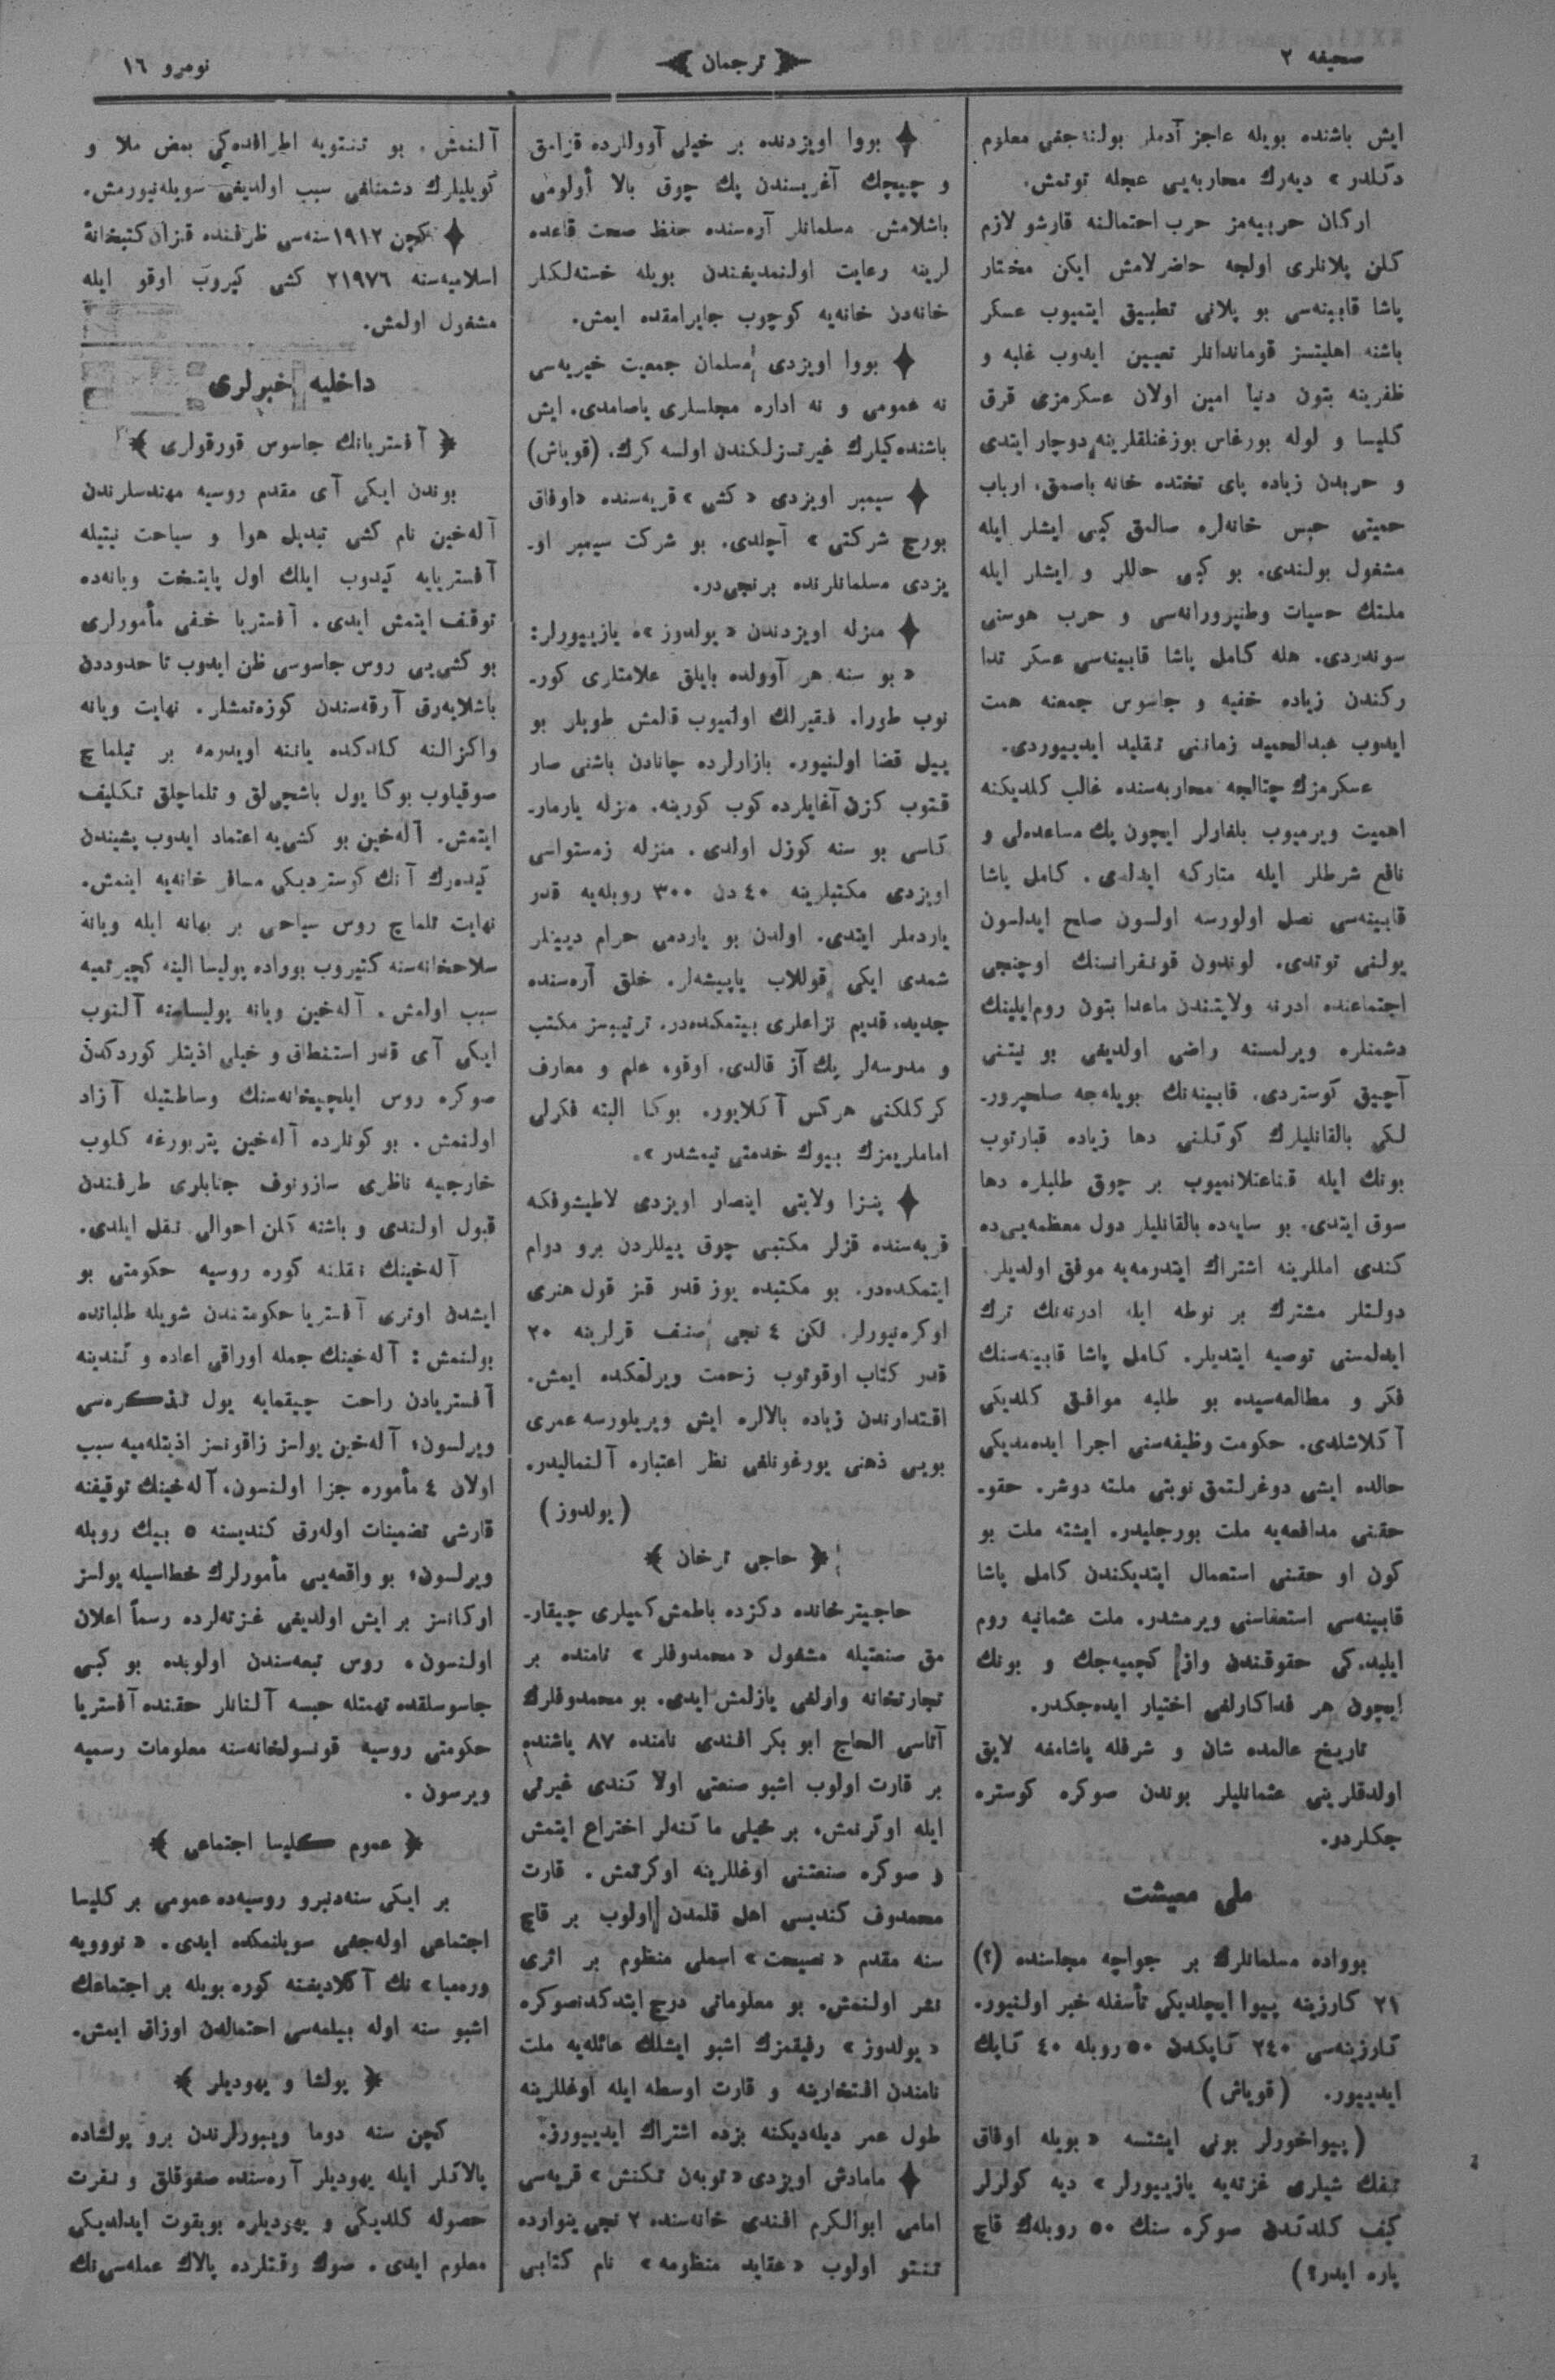 صحیفه ٢
ترجمان
نومرو ١٦
ایش باشنده بویله عاجز آدملر بولنه‌جغی معلوم
دکلدر» دیەرك محاربه‌یی عجله توتمش.
ارکان حربیه‌مز حرب احتمالنه قارشو لازم
کلن پلانلری اولجه حاضرلامش ایکن مختار
پاشا قابینه‌سی بو پلانی تطبیق ایتمیوب عسکر
باشنه اهلیتسز قوماندانلر تعیین ایدوب غلبه و
ظفرینه بتون دنیا امین اولان عسکرمزی قرق
کلیسا و لوله بورغاس بوزغنلقلرینه دوچار ایتدی
و حربدن زیاده پای تختده خانه باصمق، ارباب
حمیتی حبس خانه‌لره صالمق کبی ایشلر ایله
مشغول بولندی. بو کبی حاللر و ایشلر ایله
ملتك حسیات وطنپرورانه‌سی و حرب هوسنی
سوندردی. هله کامل پاشا قابینه‌سی عسکر تدا
رکندن زیاده خفیه و جاسوس جمعنه همت
ایدوب عبدالحمید زماننی تقلید ایدییوردی.
عسکرمزك چتالجه محاربه‌سنده غالب کلدیکنه
اهمیت ویرمیوب بلغارلر ایچون پك مساعده‌لی و
نافع شرطلر ایله متارکه ایدلدی. کامل پاشا
قابینه‌سی نصل اولورسه اولسون صلح ایدلسون
یولنی توتدی. لوندون قونفرانسنك اوچنجی
اجتماعنده ادرنه ولایتندن ماعدا بتون روم‌ایلینك
دشمنلره ویرلمسنه راضی اولدیغی بو نیتنی
آچیق کوستردی. قابینه‌نك بویله‌جه صلحپرور-
لکی بالقانلیلرك کوکلنی دها زیاده قبارتوب
بونك ایله قناعتلانمیوب بر چوق طلبلره دها
سوق ایتدی. بو سایه‌ده بالقانلیلر دول معظمه‌یی‌ده
کندی امللرینه اشتراك ایتدرمه‌یه موفق اولدیلر.
دولتلر مشترك بر نوطه ایله ادرنه‌نك ترك
ایدلمسنی توصیه ایتدیلر. کامل پاشا قابینه‌سنك
فکر و مطالعه‌سیده بو طلبه موافق کلدیکی
آکلاشلدی. حکومت وظیفه‌سنی اجرا ایده‌مدیکی
حالده ایشی دوغرلتمق نوبتی ملته دوشر. حقو-
حقنی مدافعه‌یه ملت بورجلیدر. ایشته ملت بو
کون او حقنی استعمال ایتدیکندن کامل پاشا
قابینه‌سی استعفاسنی ویرمشدر. ملت عثمانیه روم
ایلیده‌کی حقوقندن واز کچمیه‌جك و بونك
ایچون هر فداکارلغی اختیار ایده‌جکدر.
تاریخ عالمده شان و شرفله یاشامغه لایق
اولدقلرینی عثمانلیلر بوندن صوکره کوستره
جکلردر.
ملی معیشت
بوواده مسلمانلرك بر جواچه مجلسنده (؟)
٢١ کارزینه پیوا ایچلدیکی تأسفله خبر اولنیور.
کارزینه‌سی ٢٤٠ کاپکدن ٥٠ روبله ٤٠ کاپك
ایدییور. (قویاش)
(پیواخورلر بونی ایشتسه «بویله اوفاق
تفك شیلری غزته‌یه یازییورلر» دیه کولرلر
کیف کلدکدن صوکره سنك ٥٠ روبله‌ك قاچ
پاره ایدر؟)
بووا اویزدنده بر خیلی آووللرده قزامق
و چیچك آغریسندن پك چوق بالا أولومی
باشلامش. مسلمانلر آره‌سنده حفظ صحت قاعده
لرینه رعایت اولنمدیغندن بویله خسته‌لکلر
خانه‌دن خانه‌یه کوچوب جایرامقده ایمش.
بووا اویزدی مسلمان جمعیت خیریه‌سی
نه عمومی و نه اداره مجلسلری یاصامدی. ایش
باشنده‌کیلرك غیرتسزلکندن اولسه کرك. (قویاش)
سیمبر اویزدی «کشی» قریه‌سنده «اوفاق
بورچ شرکتی» آچلدی. بو شرکت سیمبر او-
یزدی مسلمانلرنده برنجی‌در.
منزله اویزدندن «یولدوز»ه یازییورلر:
«بو سنه هر آوولده بایلق علامتلری کور-
نوب طورا. فقیرلك اولمیوب قالمش طویلر بو
ییل قضا اولنیور. بازارلرده چانادن باشنی صار
قتوب کزن آغایلرده کوب کورینه. منزله یارمار-
کاسی بو سنه کوزل اولدی. منزله زمستواسی
اویزدی مکتبلرینه ٤٠ دن ٣٠٠ روبله‌یه قدر
یاردملر ایتدی. اولدن بو یاردمی حرام دیینلر
شمدی ایکی قوللاب یاپیشه‌لر. خلق آره‌سنده
جدید، قدیم نزاعلری بیتمکده‌در. ترتیبسز مکتب
و مدرسه‌لر پك آز قالدی. اوقو، علم و معارف
کرکلکنی هرکس آکلایور. بوکا البته فکرلی
امامه‌لریمزك بیوك خدمتی تیمشدر».
پنزا ولایتی اینصار اویزدی لاطیشوفکه
قریه‌سنده قزلر مکتبی چوق ییللردن برو دوام
ایتمکده‌در. بو مکتبده یوز قدر قز قول هنری
اوکره‌نیورلر. لکن ٤ نجی صنف قزلرینه ٢٠
قدر کتاب اوقوتوب زحمت ویرلمکده ایمش.
اقتدارندن زیاده بالالره ایش ویریلورسه عمری
بویی ذهنی یورغونلغی نظر اعتباره آلنمالیدر.
(یولدوز)
﴿ حاجی ترخان ﴾
حاجیترخانده دکزده باطمش کمیلری چیقار-
مق صنعتیله مشغول «محمدوفلر» نامنده بر
تجارتخانه وارلغی یازلمش ایدی. بو محمدوفلرك
آتاسی الحاج ابو بکر افندی نامنده ٨٧ یاشنده
بر قارت اولوب اشبو صنعتی اولا کندی غیرتی
ایله اوکرنمش، بر خیلی ماکنه‌لر اختراع ایتمش
و صوکره صنعتنی اوغللرینه اوکرتمش. قارت
محمدوف کندیسی اهل قلمدن اولوب بر قاچ
سنه مقدم «نصیحت» اسملی منظوم بر اثری
نشر اولنمش. بو معلوماتی درج ایتدکدنصوکره
«یولدوز» رفیقمزك اشبو ایشلك عائله‌یه ملت
نامندن افتخارینه و قارت اوسطه ایله اوغللرینه
طول عمر دیله‌دیکنه بزده اشتراك ایدییورز.
مامادش اویزدی «توبه‌ن تکنش» قریه‌سی
امامی ابوالکرم افندی خانه‌سنده ٢ نجی ینوارده
تنتو اولوب «عقاید منظومه» نام کتابی
آلنمش. بو تنتویه اطرافده‌کی بعض ملا و
کویلیلرك دشمنلغی سبب اولدیغی سویله‌نیورمش.
کچن ١٩١٢ سنه‌سی ظرفنده قزان کتبخانهٔ
اسلامیه‌سنه ٢١٩٧٦ کشی کیروب اوقو ایله
مشغول اولمش.
داخلیه خبرلری
﴿ آفستریانك جاسوس قورقولری ﴾
بوندن ایکی آی مقدم روسیه مهندسلرندن
آله‌خین نام کشی تبدیل هوا و سیاحت نیتیله
آفستریایه کیدوب ایلك اول پایتخت ویانه‌ده
توقف ایتمش ایدی. آفستریا خفی مأمورلری
بو کشی‌یی روس جاسوسی ظن ایدوب تا حدوددن
باشلایه‌رق آرقه‌سندن کوزه‌تمشلر. نهایت ویانه
واکزالنه کلدکده یاننه اویدرمه بر تیلماچ
صوقیلوب بوکا یول باشچی‌لق و تلماچلق تکلیف
ایتمش. آله‌خین بو کشی‌یه اعتماد ایدوب پشیندن
کیده‌رك آنك کوستردیکی مسافر خانه‌یه اینمش.
نهایت تلماچ روس سیاحی بر بهانه ایله ویانه
سلاحخانه‌سنه کتیروب بوراده پولیسا الینه کچیرتمیه
سبب اولمش. آله‌خین ویانه پولیساسنه آلنوب
ایکی آی قدر استنطاق و خیلی اذیتلر کوردکدن
صوکره روس ایلچیخانه‌سنك وساطتیله آزاد
اولنمش. بو کونلرده آله‌خین پتربورغه کلوب
خارجیه ناظری سازونوف جنابلری طرفندن
قبول اولندی و باشنه کلن احوالی نقل ایلدی.
آله‌خینك نقلنه کوره روسیه حکومتی بو
ایشدن اوتری آفستریا حکومتندن شویله طلباتده
بولنمش: آله‌خینك جمله اوراقی اعاده و کندینه
آفستریادن راحت چیقمایه یول تذکره‌سی
ویرلسون؛ آله‌خین یولسز زاقونسز اذیتله‌میه سبب
اولان ٤ مأموره جزا اولنسون، آله‌خینك توقیفنه
قارشی تضمینات اوله‌رق کندیسنه ٥ بیك روبله
ویرلسون؛ بو واقعه‌یی مأمورلرك خطاسیله یولسز
اورکانسز بر ایش اولدیغی غزته‌لرده رسماً اعلان
اولنسون، روس تبعه‌سندن اولوبده بو کبی
جاسوسلقده تهمتله حبسه آلنانلر حقنده آفستریا
حکومتی روسیه قونسولخانه‌سنه معلومات رسمیه
ویرسون.
﴿ عموم کلیسا اجتماعی ﴾
بر ایکی سنه‌دنبرو روسیه‌ده عمومی بر کلیسا
اجتماعی اوله‌جغی سویلنمکده ایدی. «نوویه
ورەمیا» نك آکلادیغنه کوره بویله بر اجتماعك
اشبو سنه اوله بیلمه‌سی احتمالدن اوزاق ایمش.
﴿ پولشا و یهودیلر ﴾
کچن سنه دوما ویبورلرندن برو پولشاده
پالاکلر ایله یهودیلر آره‌سنده صغوقلق و نفرت
حصوله کلدیکی و یهودیلره بویقوت ایدلدیکی
معلوم ایدی. صوك وقتلرده پالاك عمله‌سی‌نك